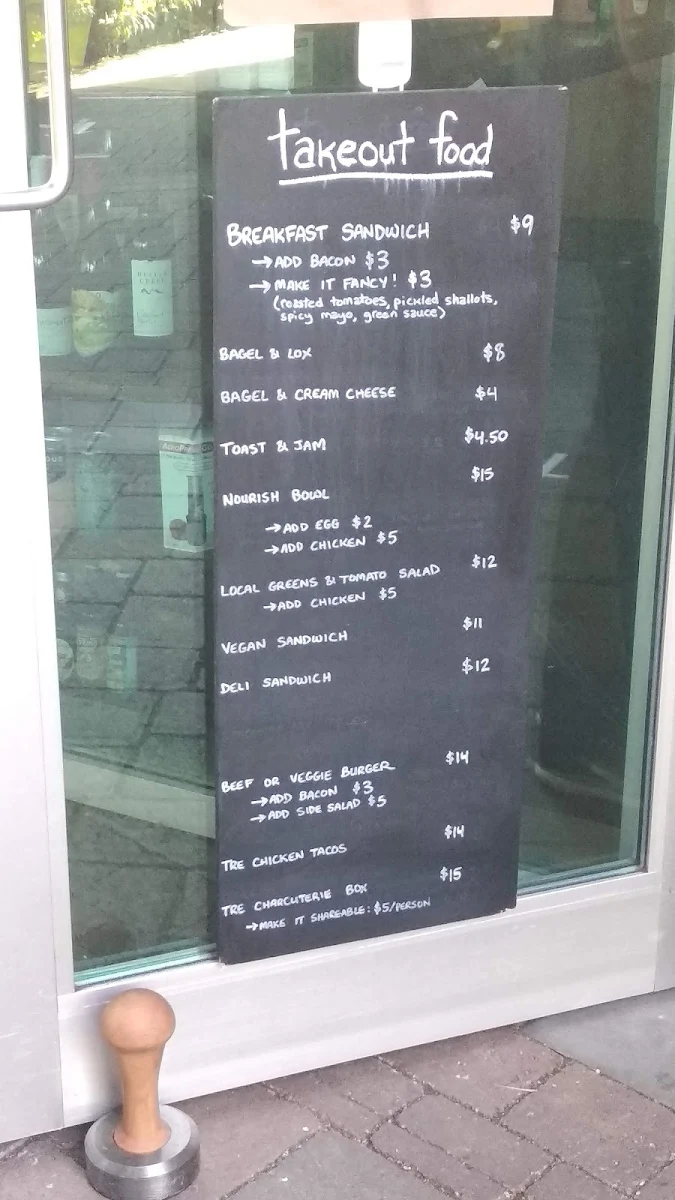 takeout food
BREAKFAST SANDWICH $9
→ADD BACON $3
→MAKE IT FANCY! $3
(roasted tomatoes, pickled shallots,
spicy mayo, green sauce)
BAGEL & LOX $8
BAGEL & CREAM CHEESE $4
TOAST & JAM $4.50
NOURISH BOWL $15
→ADD EGG $2
→ADD CHICKEN $5
LOCAL GREENS & TOMATO SALAD $12
→ADD CHICKEN $5
VEGAN SANDWICH $11
DELI SANDWICH $12
BEEF OR VEGGIE BURGER $14
→ADD BACON $3
→ADD SIDE SALAD $5
TRE CHICKEN TACOS $14
TRE CHARCUTERIE BOX $15
→MAKE IT SHAREABLE: $5/PERSON